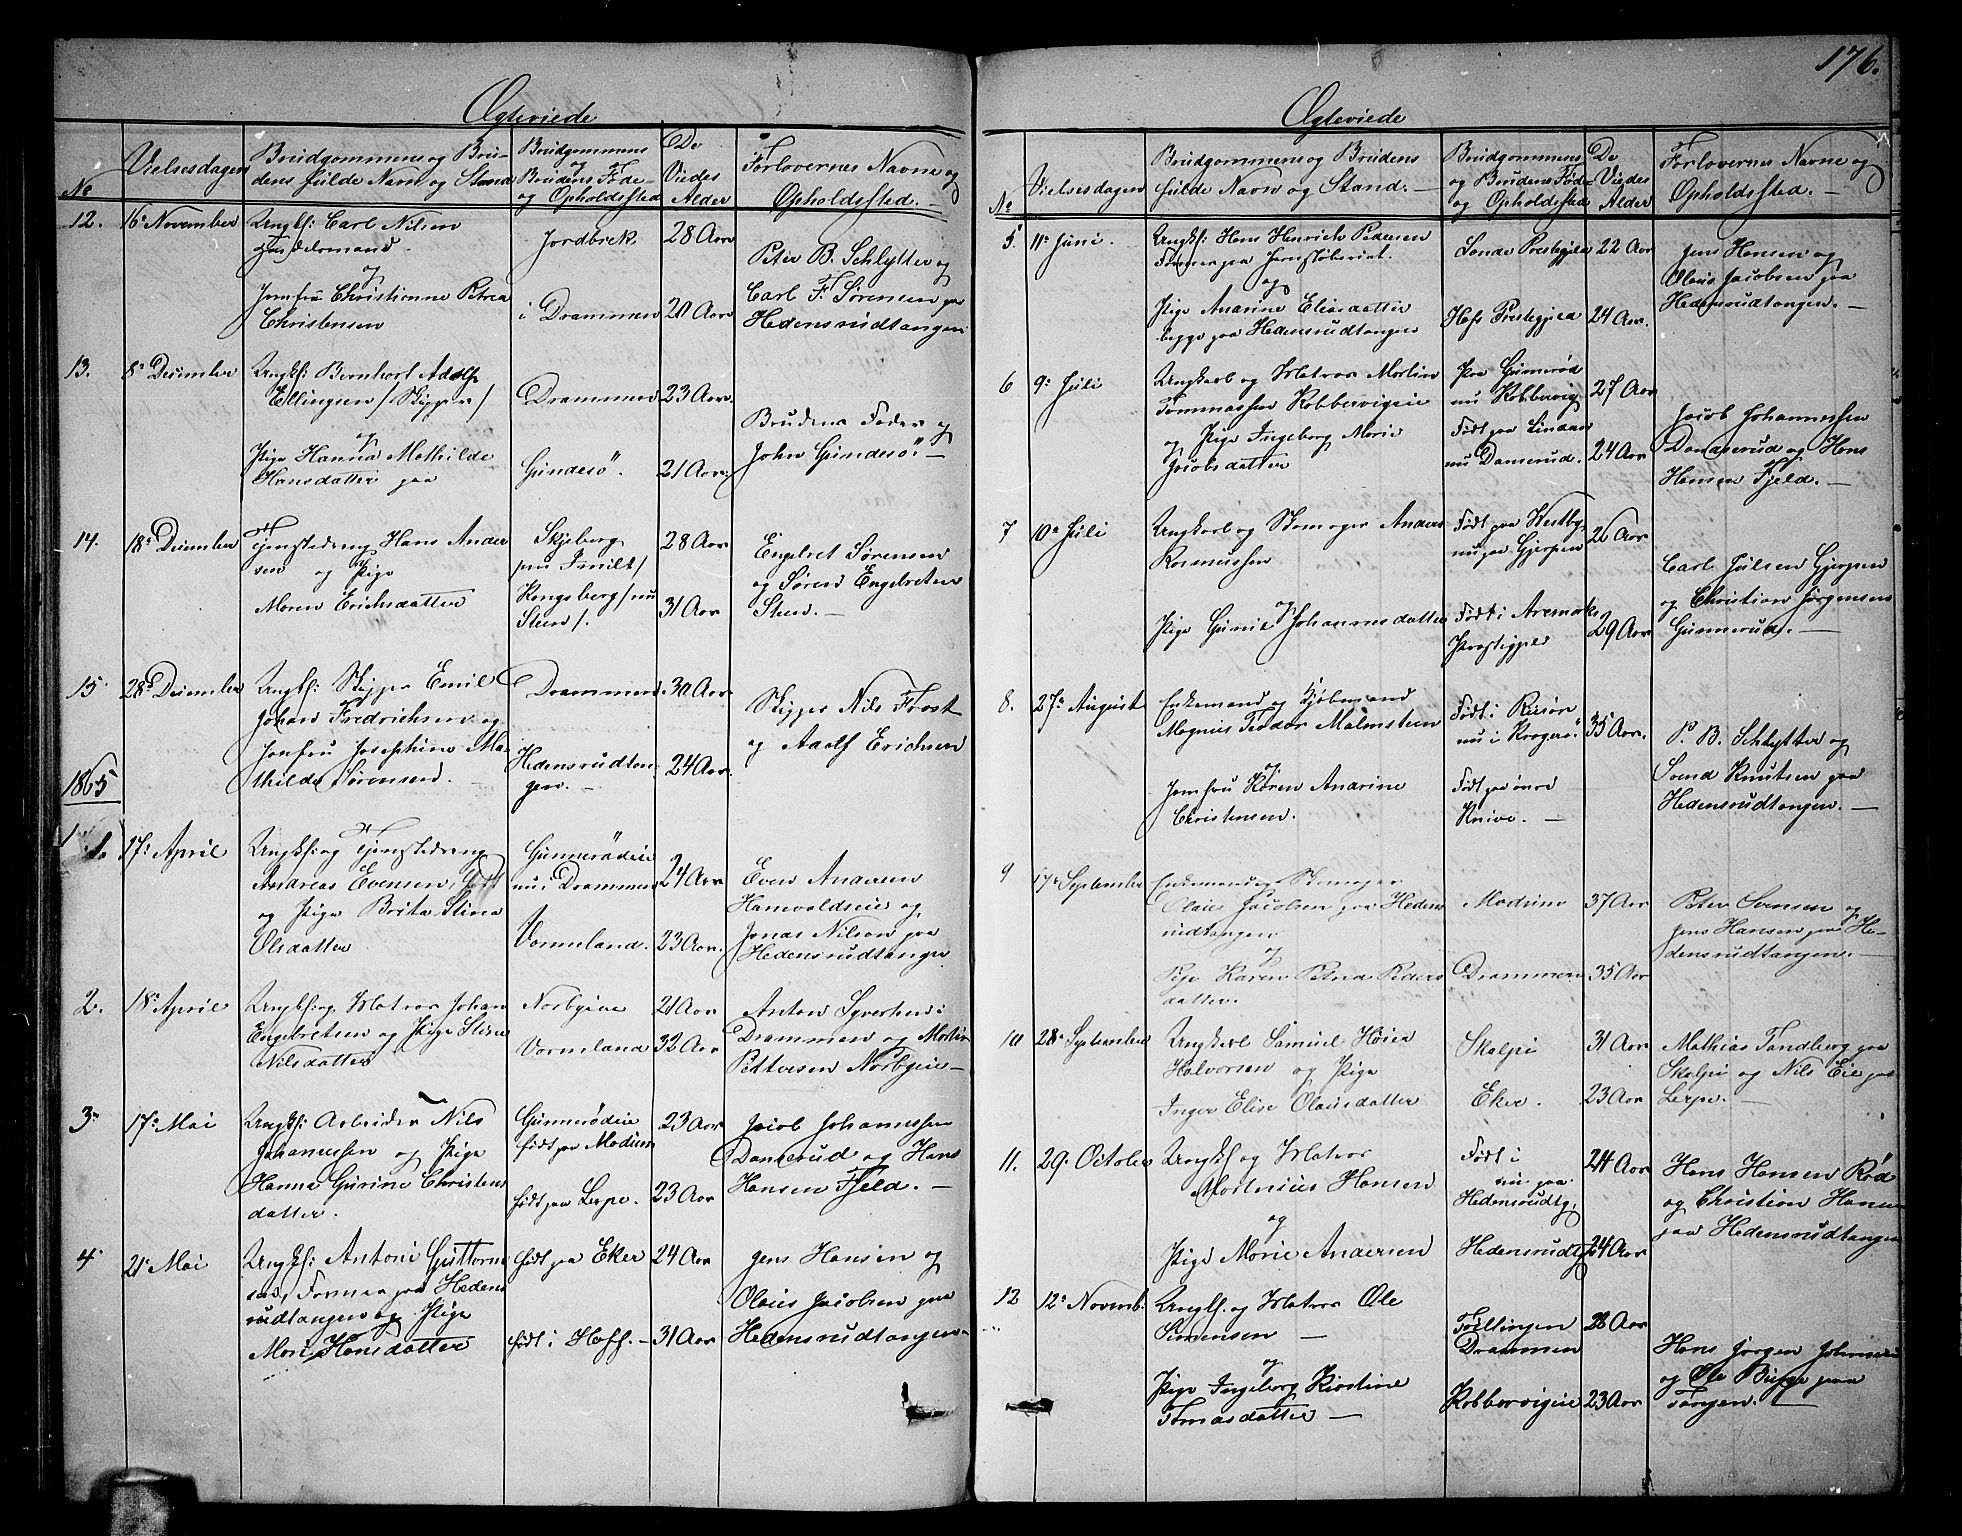 176.
Ægteviede
No
Vielsesdagen
Brudgommens og Bru-
dens fulde Navn og Stand
Brudgommens
og
Brudens Føde-
og Opholdssted
De
Viedes
Alder
Forlovernes Navne og
Opholdssted. -
12. 16de November
Ungkf: Carl Nilsen
og
Jomfru Christianne Petrea
Christensen
Jordbrek
i Drammen
28 Aar
20 Aar
Peter B. Schlytter og
Carl F. Sørensen paa
Hedensrudtangen
13. 8de December
Ungkf: Bernhart Adolf
Ellingsen /Skipper/
og
Pige Hanna Mathilde
Hansdatter paa
Drammen
Gundesö.
23 Aar
21 Aar
Brudens Fader og
John Gundesö. -
14. 18de December
Tjenstedreng Hans Ander
sen og Pige
Maren Erichsdatter
Skjeberg
Kongsberg /nu
Steen/.
28 Aar
31 Aar
Engebret Sørensen
og Søren Engebretsen
Steen. -
15. 28de December
Ungkf: Skipper Emil
Johan Fredrichsen og
Jomfru Josephine Ma-
thilde Sørensen. -
Drammen.
Hedensrudtan-
gen. -
30 Aar
24 Aar.
Skipper Nils Frost
og Adolf Erichsen
1865
1. 17: April
Ungkf: og Tjenstedreng
Andreas Evensen,
og Pige Brita Stina
Olsdatter
Gunnerødeie
nu i Drammen
Vermeland.
24 Aar
23 Aar.
Even Andersen
Hanevoldseie og
Jonas Nilsen paa
Hedensrudtangen
2. 18de April
Ungkf: og Matros Johan
Engebretsen og Pige Stine
Nilsdatter
Norbyeie
Vermeland
21 Aar
32 Aar
Anton Syvertsen i
Drammen og Martin
Pettersen Norbyeie -
3. 17de Mai
Ungkf: Arbeider Nils
Johannessen og Pige
Hanna Gurine Christens
datter.
Gunnerødeie
født paa Modum
født paa Lerpe.
23 Aar
23 Aar
Jacob Johannessen
Danserud og Hans
Hansen Fjeld. -
4. 21de Mai
Ungkf: Antoni Guttorm
sen, Former paa Hedens
rudtangen og Pige
Mari Hansdatter
født paa Eker
født i Hoff. -
24 Aar
31 Aar
Jens Hansen og
Olaus Jacobsen paa
Hedensrudtangen.
Ægteviede
No
Vielsesdagen
Brudgommens og Brudens
fulde Navn og Stand. -
Brudgommens
og Brudens Føde-
og Opholdssted
De
Viedes
Alder
Forlovernes Navne og
Opholdssted. -
5 11de Juni.
Ungkf: Hans Henrich Pedersen
Former paa Jernstøberiet.
og
Pige Anarine Eliasdatter
begge paa Hedensrudtangen
Sande Prestegjeld
Hofs Prestegjeld
22 Aar
24 Aar.
Jens Hansen og
Olaus Jacobsen paa
Hedensrudtangen. -
6 9de Juli
Ungkarl og Matros Martin
Tommassen Kobbervigeie
og Pige Ingeborg Marie
Jacobsdatter
Paa Gunnerød
nu Kobbervig
Født paa Lindaas
nu Danserud.
27 Aar
24 Aar
Jacob Johannessen
Danserud og Hans
Hansen Fjeld. -
7 10de Juli
Ungkarl og Skomager Anders
Rasmussen
og
Pige Gunil Johannesdatter
Født paa Westby
nu paa Gjerpen
Født i Aremarks
Præstegjeld
26 Aar
29 Aar
Carl Julsen Gjerpen
og Christian Jørgensen
Gunnerud. -
8. 27de August
Enkemand og Kjøbmand
Magnus Teodor Malmsteen
og
Jomfru Karen Anarine
Christensen.
Født i Riisør
nu i Kragerö.
Født paa øvre
Knive. -
35 Aar.
P. B. Schlytter og
Svend Knutsen paa
Hedensrudtangen. -
9 17de September
Enkemand og Skomager
Olaus Jacobsen paa Hedens
rudtangen
og
Pige Karen Petrea Peders
datter.
Modum
Drammen
37 Aar
35 Aar
Peter Svensen og
Jens Hansen paa He-
densrudtangen. -
10 28de September
Ungkarl Samuel Høiea
Halvorsen og Pige
Inger Elise Olausdatter
Skalpi
Eker.
31 Aar
23 Aar
Mathias Tandberg paa
Skalpi og Nils Eie paa
Lerpe. -
11. 29: October
Ungkf og Matros
Martinius Hansen
og
Pige Marie Andersen
Født i
nu paa
Hedensrudtg.
Hedensrudtg
24 Aar
24 Aar
Hans Hansen Rød
og Christian Hansen
paa Hedensrudtangen
12 12te Novemb.
Ungkf. og Matros Ole
Simensen -
og
Pige Ingeborg Kirstine
Tomasdatter -
Drammen
Kobbervigeie
28 Aar
23 Aar
Hans Jørgen Johnsen
og Ole Bugge paa
Tangen. -